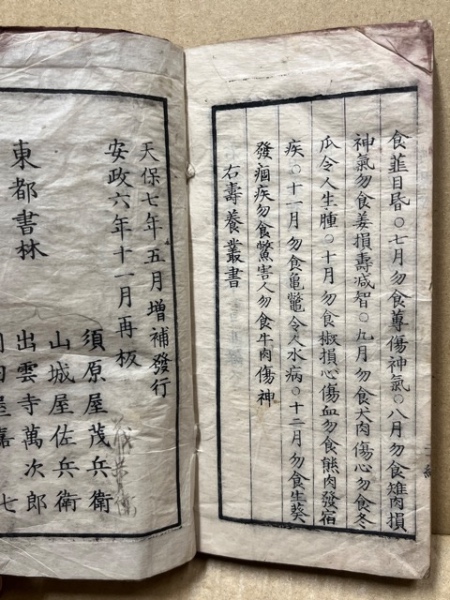 食韮目昏○七月勿食蓴傷神氣○八月勿食雉肉損
神氣勿食姜損壽減智○九月勿食犬肉傷心勿食冬
瓜令人生腫○十月勿食椒損心傷血勿食熊肉發宿
疾○十一月勿食亀鼈令人水病○十二月勿食生葵
發痼疾勿食鱉害人勿食牛肉傷神
右壽養叢書
天保七年五月增補發行
安政六年十一月再板
東都書林
須原屋茂兵衛
山城屋佐兵衛
出雲寺萬次郎
屋嘉七